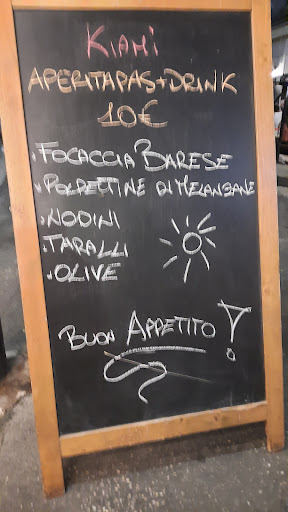 KIAMI
APERITAPAS+DRINK
10€
.FOCACCIA BARESE
.POLPETTINE DI MELANZANE
.NODINI
.TARALLI
.OLIVE
BUON APPETITO!